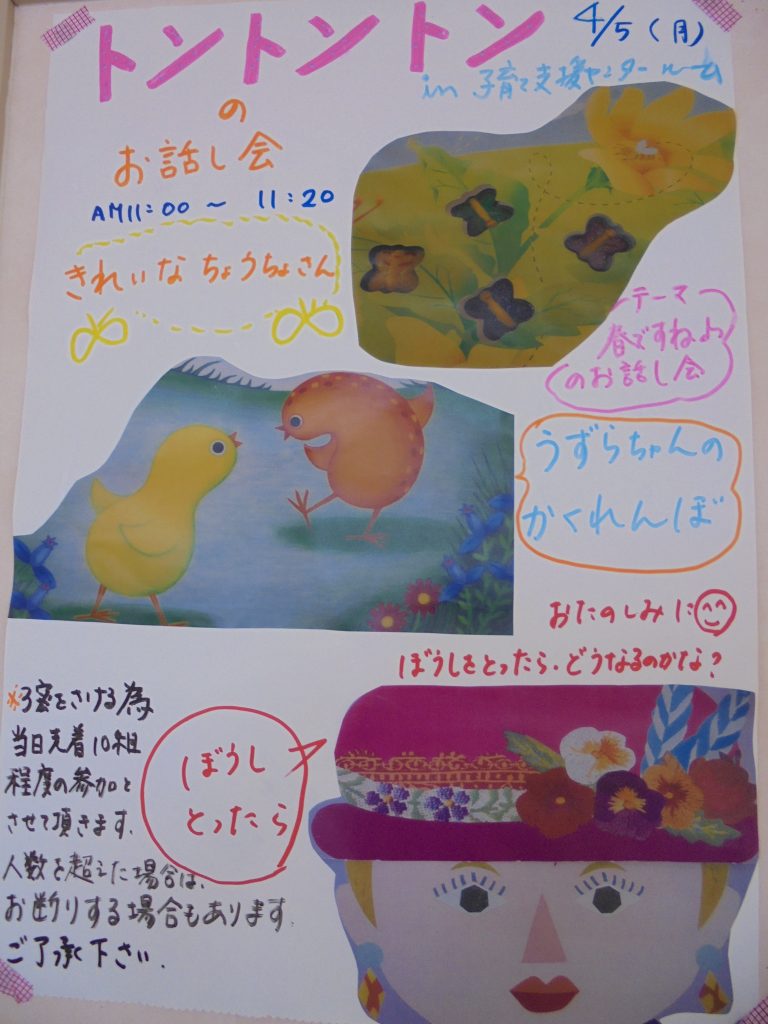 トントントン
4/5(月)
in 子育て支援センタールーム
の
お話し会
AM11:00 ~ 11:20
きれいなちょうちょさん
ーテーマー
春ですねぇ
のお話し会
うずらちゃんの
かくれんぼ
おたのしみに
ぼうしをとったら、どうなるのかな?
※3密をさける為
当日先着10組
程度の参加と
させて頂きます。
人数を超えた場合は、
お断りする場合もあります。
ご了承下さい。
ぼうし
とったら